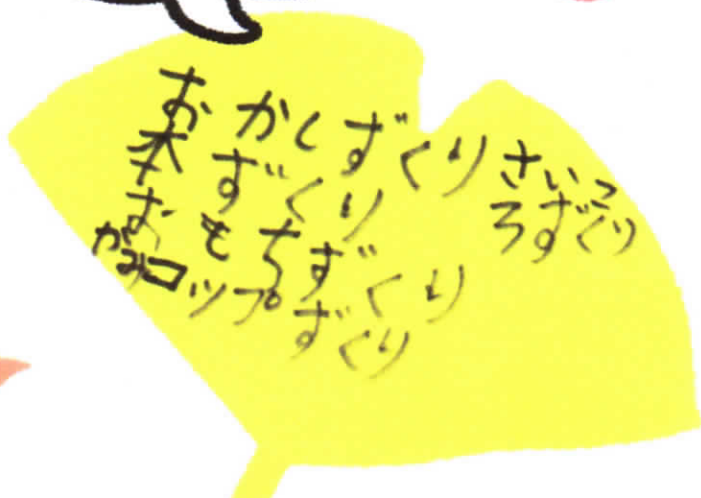 おかしずくり
さいころずくり
本ずくり
おもちずくり
がみコップずくり